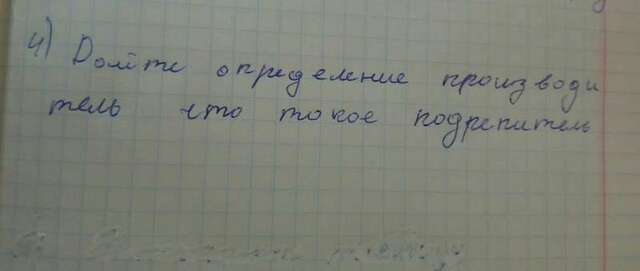 4) Дойте определение производи
тель что токое подрепитель